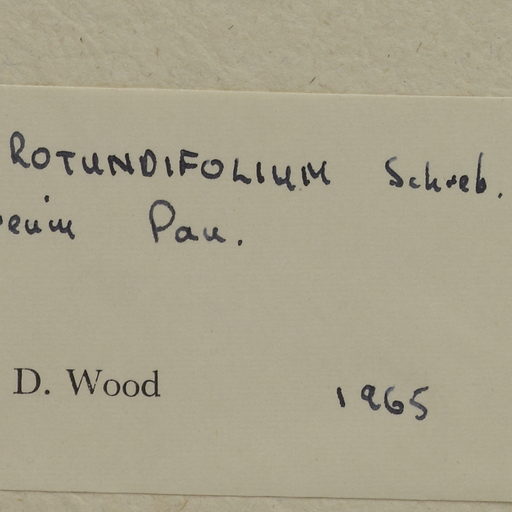 ROTUNDIFOLIUM Schreb.
Pau.
D. Wood 1965